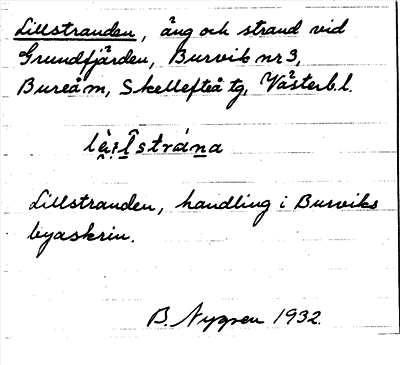 Lillstranden, äng och strand vid
Grundfjärden, Burvik nr 3,
Bureå m, Skellefteå tg, Västerb. l.
Lillstranden, handling i Burviks
byaskrin.
B. Nygren 1932.